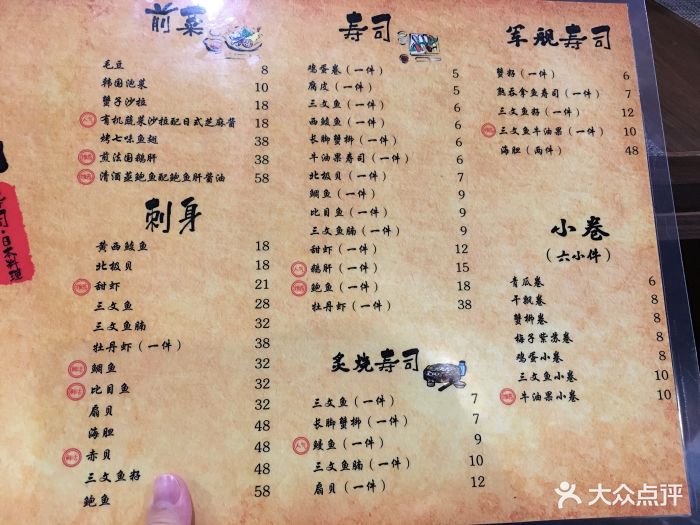 前菜
毛豆 8
韩国泡菜 10
蟹子沙拉 18
人气 有机蔬菜沙拉配日式芝麻酱 18
烤七味鱼翅 38
煎法国鹅肝 38
清酒蒸鲍鱼配鲍鱼肝酱油 58
刺身
黄西鲮鱼 18
北极贝 18
甜虾 21
三文鱼 28
三文鱼腩 32
牡丹虾（一件） 38
鲷鱼 32
比目鱼 32
扇贝 32
海胆 48
赤贝 48
三文鱼籽 48
鲍鱼 58
寿司
鸡蛋卷（一件） 5
腐皮（一件） 5
三文鱼（一件） 6
西鲮鱼（一件） 6
长脚蟹柳（一件） 6
牛油果寿司（一件） 6
北极贝（一件） 7
鲷鱼（一件） 9
比目鱼（一件） 9
三文鱼腩（一件） 9
甜虾（一件） 12
人气 鹅肝（一件） 15
鲍鱼（一件） 18
牡丹虾（一件） 38
炙烧寿司
三文鱼（一件） 7
长脚蟹柳（一件） 7
人气 鳗鱼（一件） 9
三文鱼腩（一件） 10
扇贝（一件） 12
军舰寿司
蟹籽（一件） 6
熟吞拿鱼寿司（一件） 7
三文鱼籽（一件） 12
三文鱼牛油果（一件） 10
海胆（两件） 48
小卷
（六小件）
青瓜卷 6
干瓢卷 8
蟹柳卷 8
梅子紫苏卷 8
鸡蛋小卷 8
三文鱼小卷 10
牛油果小卷 10
寿司·日本料理
大众点评